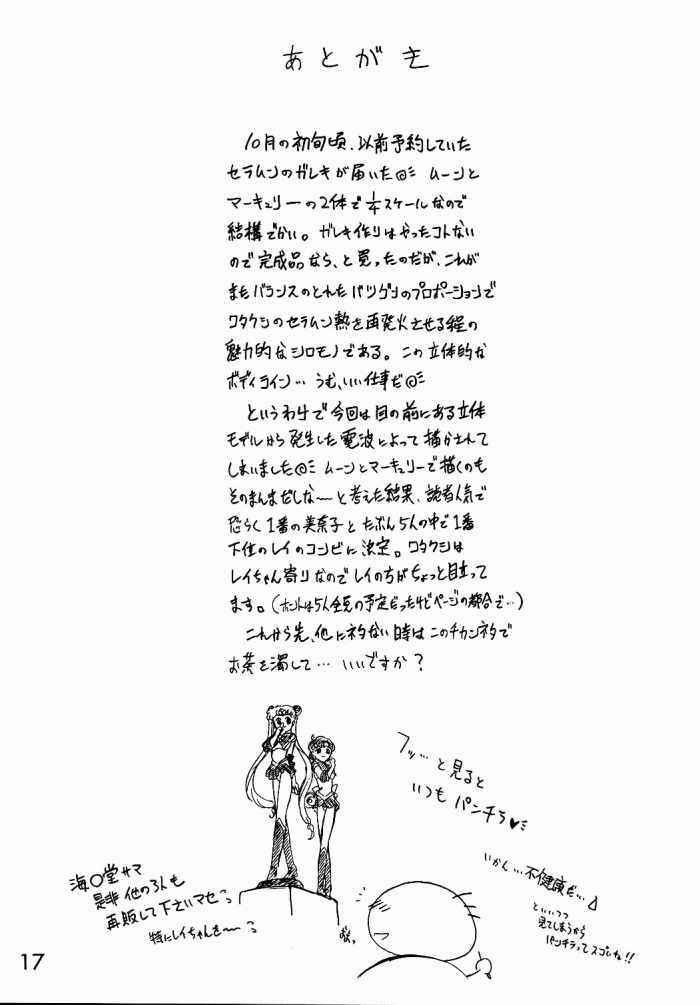 あとがき
10月の初旬頃、以前予約していた
セラムンのガレキが届いた◎ミ ムーンと
マーキュリーの2体で1/4スケールなので
結構でかい。ガレキ作りはやったコトない
ので完成品なら、と買ったのだが、これが
またバランスのとれたバツグンのプロポーションで
ワタクシのセラムン熱を再発火させる程の
魅力的なシロモノである。この立体的な
ボディライン… うむ、いい仕事だ◎ミ
というわけで今回は目の前にある立体
モデルから発生した電波によって描かされて
しまいました◎ミ ムーンとマーキュリーで描くのも
そのまんまだしな〜と考えた結果、読者人気で
恐らく1番の美奈子とたぶん5人の中で1番
下位のレイのコンビに決定。ワタクシは
レイちゃん寄りなのでレイの方がちょっと目立って
ます。(ホントは5人全員の予定だったけどページの都合で…)
これから先、他にネタない時はこのチカンネタで
お茶を濁して… いいですか?
フッ… と見ると
いつもパンチラ♥ミ
いかん…不健康だ…
といいつつ
見てしまうから
パンチラってスゴいね!!
海〇堂サマ
是非他の3人も
再販して下さいマセ
特にレイちゃんを〜
17